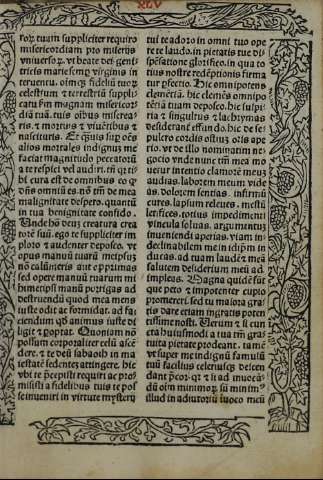 XLV
ror tuam suppliciter requiro
misericordiam pro miseriis
universorum. ut beate dei geni-
tricis marie semp virginis in
triveniu. oibus z filiorū tuorū
celestium z terrestriū suppli-
catu sim magnam misericor-
diā tuā. tuis oibus miserea-
ris. z mortuis z viuentibus z
nascituris. Et
alios mortales indignus me
faciat magnitudo peccatorū
a te respici vel audiri. tñ qr ti-
bi cura est de omnibus eo qd
deus omniū es. nō tñ de mea
malignitate despero. quantū
in tua benignitate confido.
Unde hō deus creatura crea
torē suū. ego te suppliciter im
ploro z audenter deposco. vt
opus manuū tuarū meipsuz
nō calūnieris aut opprimas
sed opere manuū tuarum mi
himetipsi manū porrigas ad
destruendū quod mea mens
iuste odit ac formidat. ad fa-
ciendum qd animus iuste di
ligit z optat. Quoniam nō
possum corporaliter celū ascē
dere. z te deū sabaoth in ma
iestate sedentez attingere. hic
vbi te precepisti requiri ac pro
misisti a fidelibus tuis te pos
se inueniri in virtute mysterij
tui te adoro in omni tuo ope
re te laudo. in pietatis tue di
spēsatione glorifico. in qua to
tius nostre redēptionis firma
tur profectio. Hic omnipotens
clementia. hic clemēs omnipo
tētia tuam deposco. hic suspi
ria z singultus z lachrymas
desiderant effundi. hic de se-
pulcro cordis ostiuz oris ape
rio. vt de illo nominatim ne-
gocio vnde nunc tm mea mo
uetur intentio clamorē meuz
audias. laborem meum vide
as. dolorem sentias. infirmū
cures. lapsum releues. mestū
letifices. totius impedimenti
vincula soluas. argumentuz
inueniendi aperias. viam in-
declinabilem me in idipm in
ducas. ad tuam laudē z meā
salutem desiderium meū ad
impleas. Magna quidē sunt
que peto z impotenter cupio
promereri. sed tu maiora gra
tis dare etiam ingratis poten
tissimus es. Verum z si cun
cta huiusmodi a tua tm gra-
tuita pietate prodeant. tamē
vt super me indignū famulū
tuū facilius celeriusqz descen
dant precor.
illud in adiutoriū inuoco meū